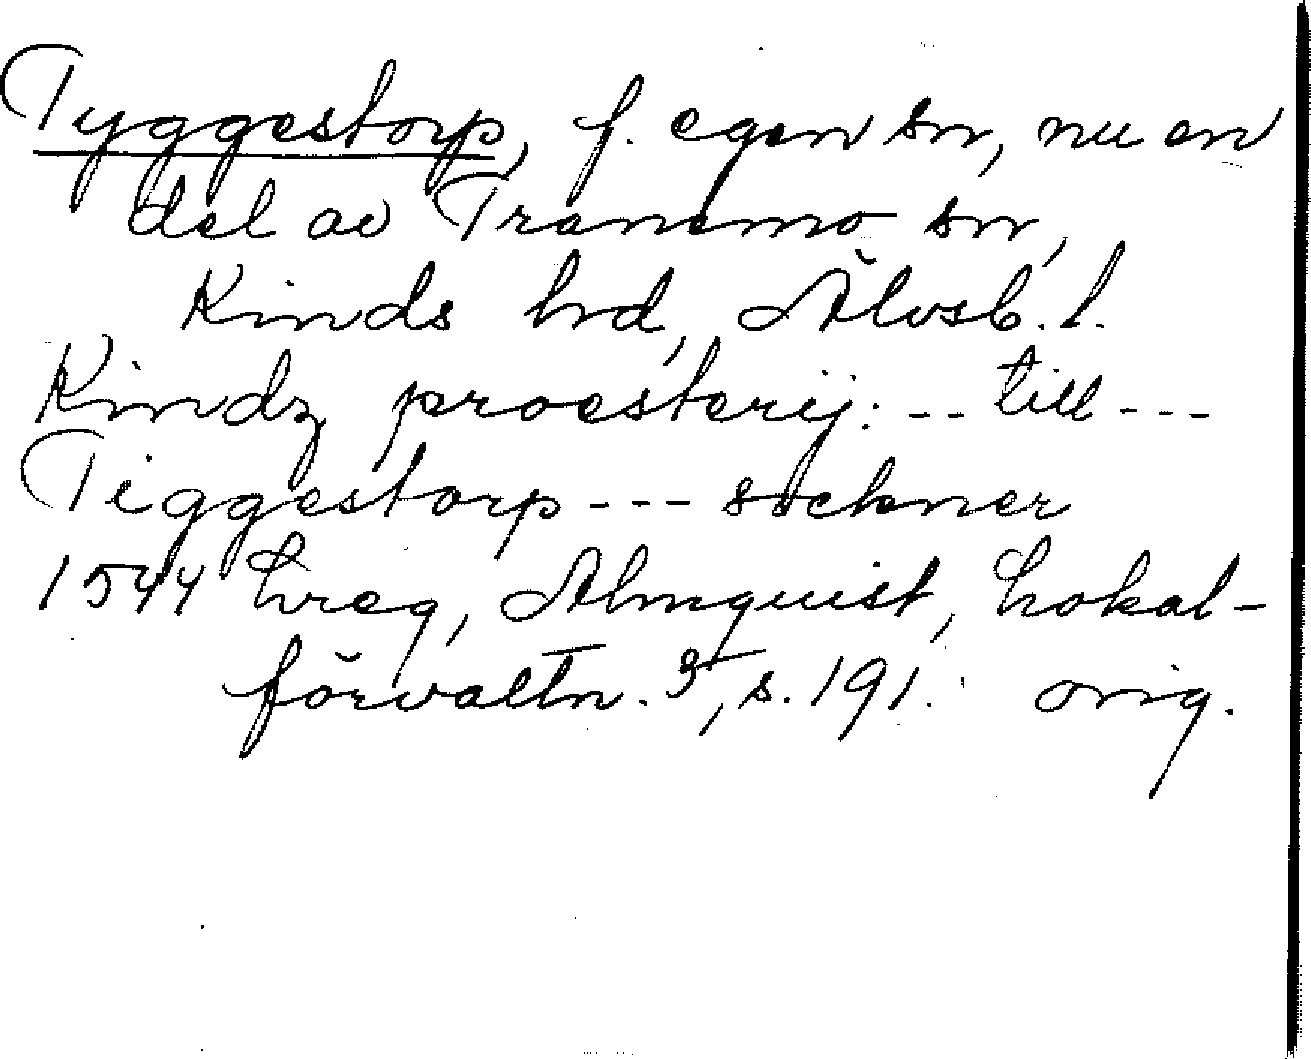 Tyggestorp, f. egen sn, nu en
del av Tranemo sn,
Kinds hd, Älvsb. l.
Kindz proesterij: -- till ---
Tiggestorp --- sockner
1544 Lreg, Almquist, Lokal-
förvaltn. 3, s. 191. orig.